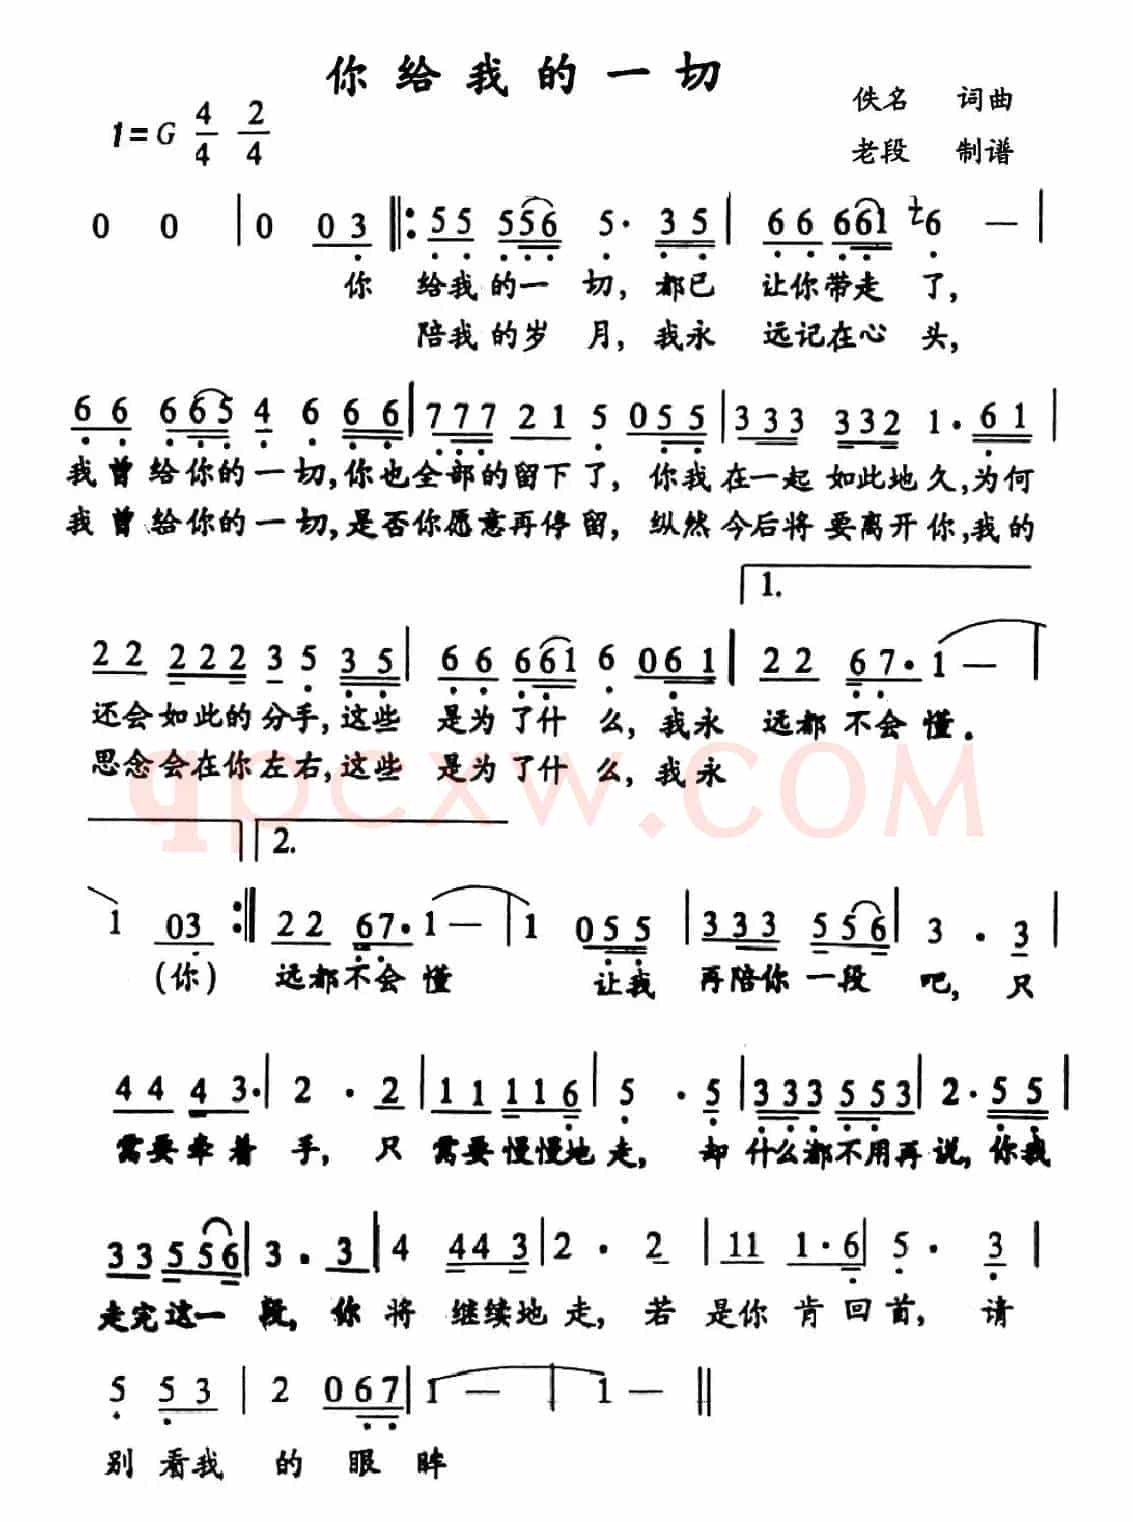 你给我的一切
佚名 词曲
1=G 4/4 2/4
老段 制谱
0 0 | 0 03 |: 55 556 5· 35 | 66 661 6 — |
你 给我的一 切, 都已 让你带走 了,
陪我的岁 月, 我永 远记在心 头,
66 665 4 6 66 | 777 21 5 055 | 333 332 1· 61 |
我曾给你的一切,你也全部的留下了, 你我在一起 如此地久,为何
我曾给你的一切,是否你愿意再停留, 纵然今后将要离开你,我的
1.
22 222 3 5 35 | 66 661 6 061 | 22 67· 1 — |
还会如此的分手,这些 是为了什 么, 我永 远都不会懂.
思念会在你左右,这些 是为了什 么, 我永
qpcxw.COM
2.
1 03 :| 22 67· 1 — | 1 055 | 333 556 | 3 · 3 |
(你) 远都不会懂 让我 再陪你一段 吧, 只
44 43· | 2 · 2 | 11 116 | 5 · 5 | 333 553 | 2· 55 |
需要牵着 手, 只 需要慢慢地走, 却 什么都不用再说,你我
33 556 | 3 · 3 | 4 443 | 2 · 2 | 11 1·6 | 5· 3 |
走完这一 段, 你 将 继续地走, 若 是你 肯回首, 请
5 53 | 2 067 | 1 — | 1 — ||
别 看我 的 眼眸